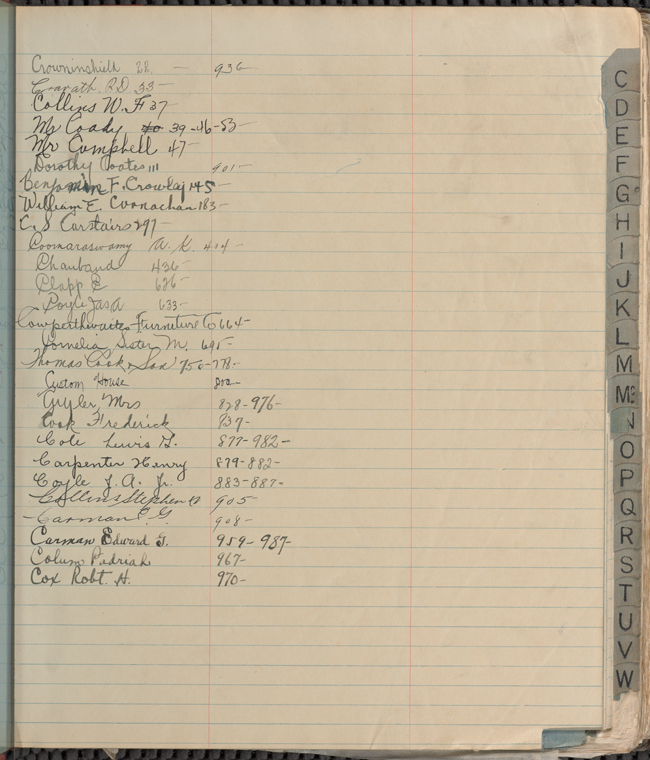 Crowninshield 22 — 936
Cravath. P.D 33—
Collins W. F 37—
Mr Coady 39-46-53—
Mr Campbell 47—
Dorothy Coates 111 901—
Benjamin F. Crowley 145—
William E. Counachan 183—
C. S Carstairs 297—
Coomaraswamy A. K. 414—
Chauband 436—
Clapp E 626—
Coyle Jas A 633—
Cowperthwaites Furneture Co 664—
Cornelia Sister M. 695—
Thomas Cook & Son 750-778—
Custom House 802—
Mrs 828-976—
Cook Frederick 837—
Cote Lewis G. 877-982—
Carpenter Henry 879-882—
Coyle J. A. Jr. 883-887—
Collins Stephen 905—
Carman E. G. 908—
Carman Edward G. 959-987-
Colum Padriak 967—
Cox Robt. H. 970—
C
D
E
F
G
H
I
J
K
L
M
Mc
N
O
P
Q
R
S
T
U
V
W